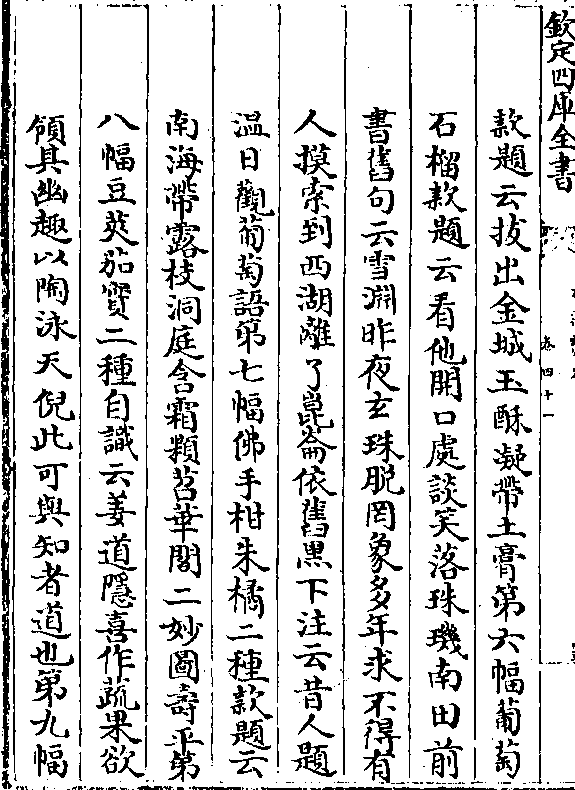 欽定四庫全書
卷四十一
款題云拔出金城玉酥凝帶土膏第六幅葡萄
石榴款題云看他開口處談笑落珠璣南田前
書舊句云雪淵昨夜玄珠脫罔象多年求不得有
人摸索到西湖離了崑崙依舊黑下注云昔人題
溫日觀葡萄語第七幅佛手柑朱橘二種款題云
南海帶露枝洞庭含霜顆苕華閣二妙圖壽平第
八幅豆莢茄實二種自識云姜道隱喜作蔬果欲
領其幽趣以陶泳天倪此可與知者道也第九幅